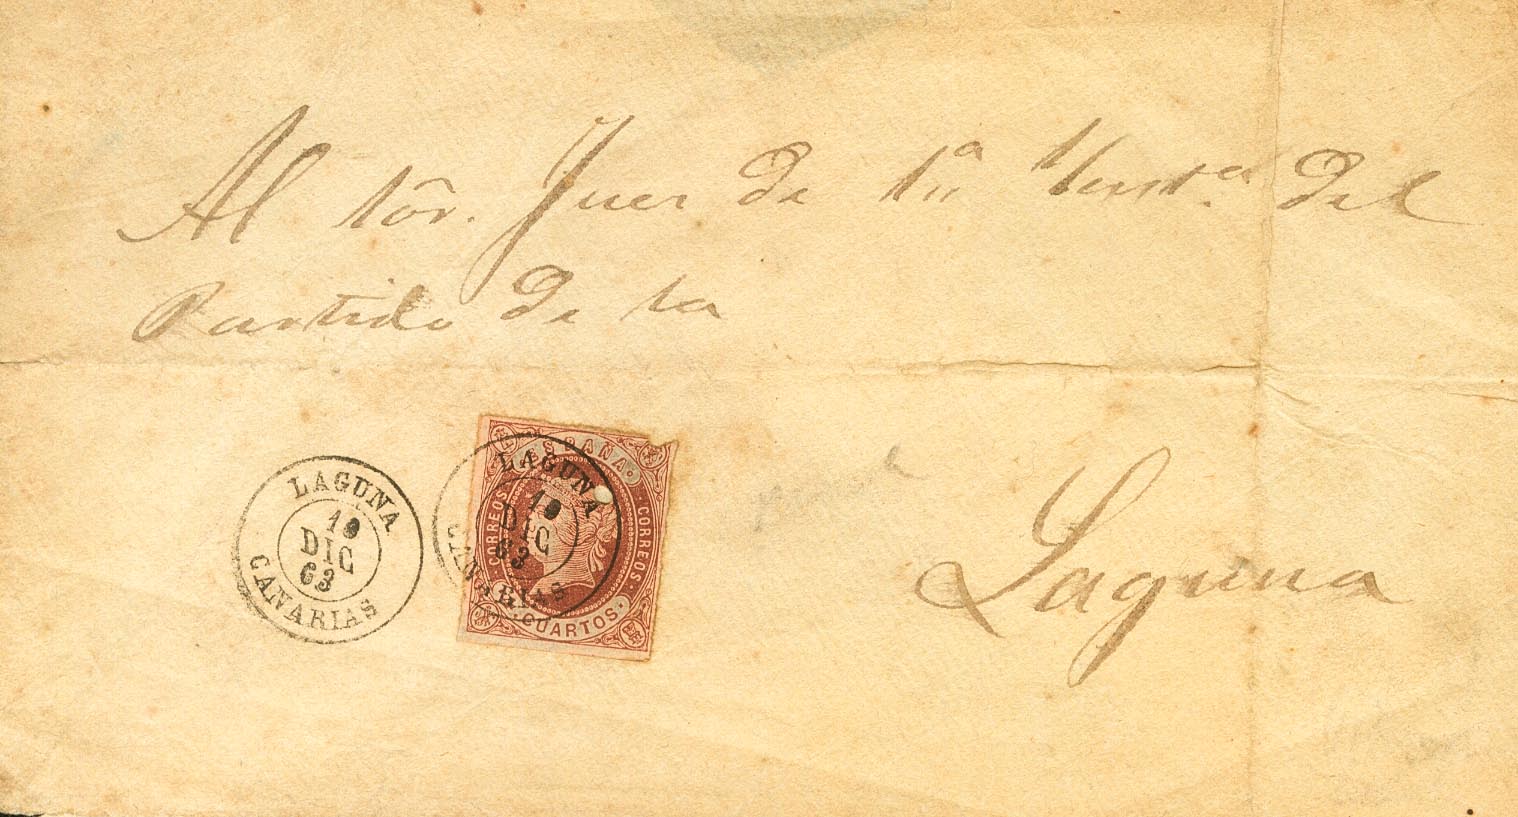 Al Sôr. Juez de 1ª Ynstª. del
Partido de la
Laguna
LAGUNA
19
DIC
63
CANARIAS
ESPAÑA
CORREOS
CORREOS
CUARTOS
LAGUNA
19
DIC
63
CANARIAS